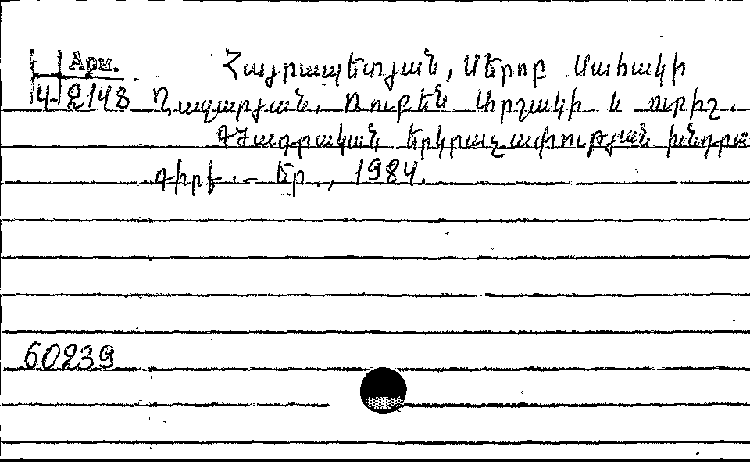 Арм. Հայրապետյան, Սերոբ Սահակի
4-2148 Ղազարյան, Ռուբեն Արշակի և ուրիշ.
Գծագրական երկրաչափության խնդրա
գիրք. – Եր., 1984.
60239